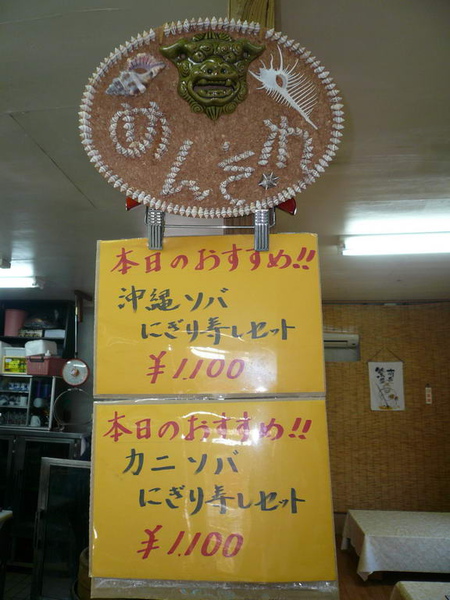 めんそ〜れ
本日のおすすめ!!
沖縄ソバ
にぎり寿しセット
¥1,100
本日のおすすめ!!
カニソバ
にぎり寿しセット
¥1,100